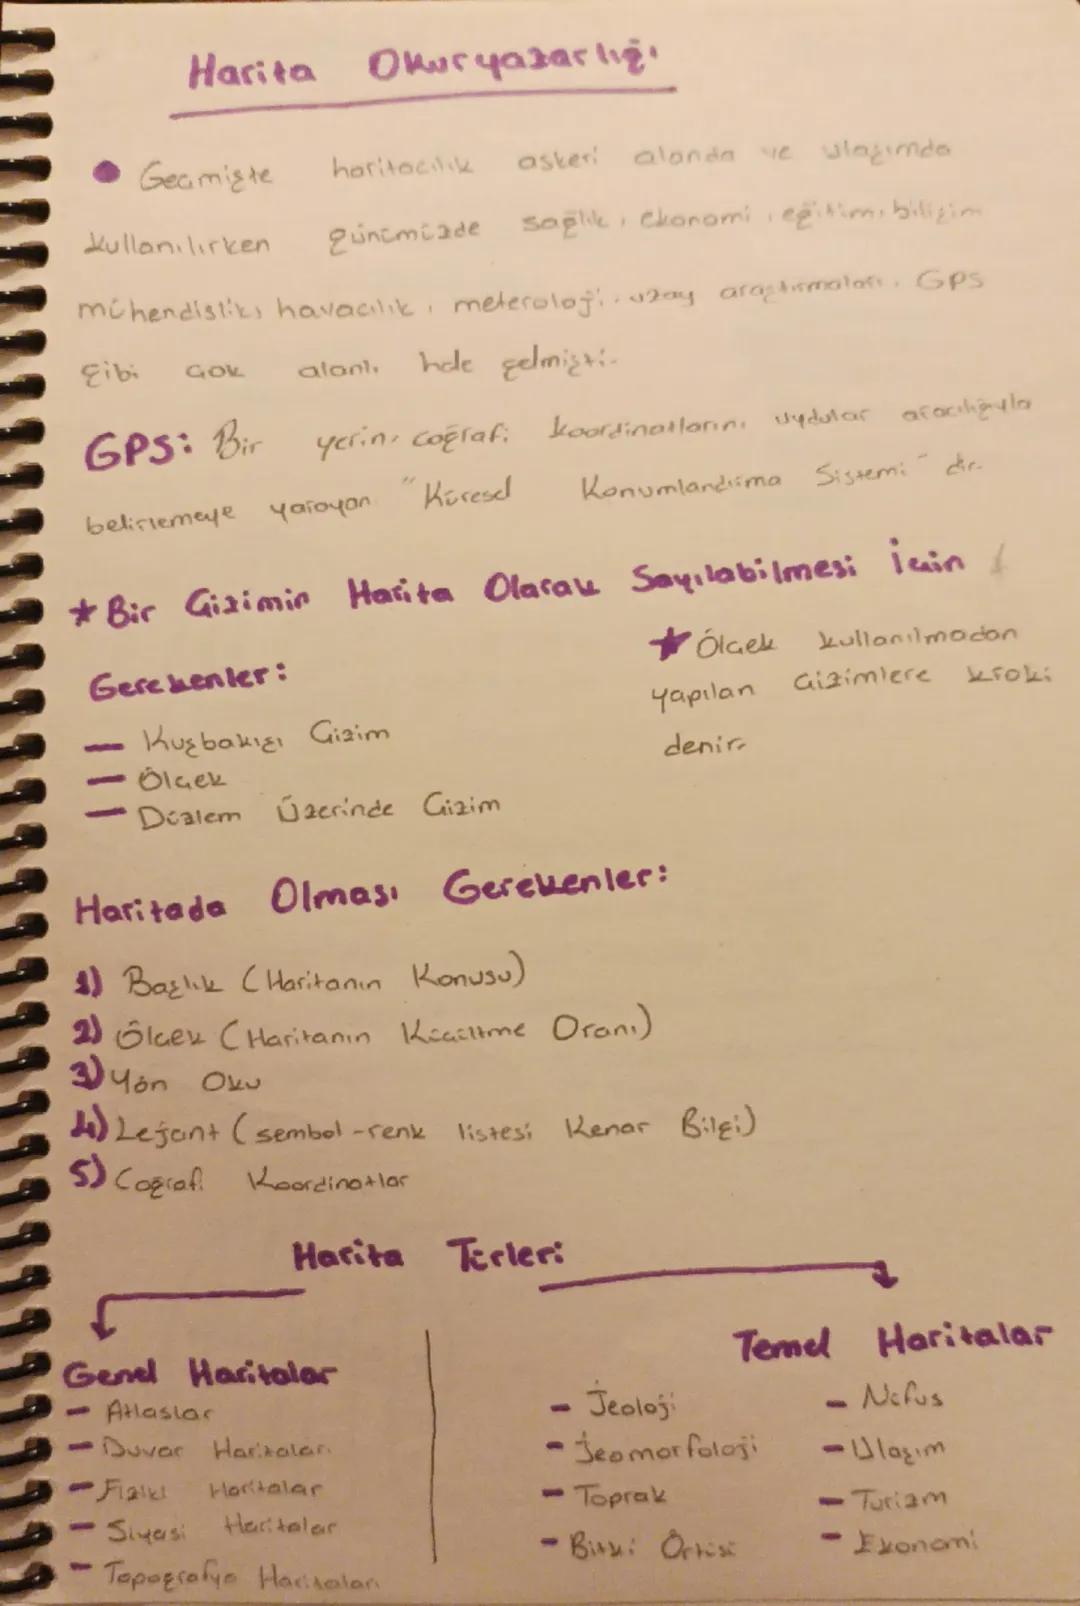 Harita Okuryazarlığı
Geçmişte haritacılık askeri alanda ve ulaşımda
kullanılırken günümüzde sağlık, ekonomi, eğitim, bilişim
mühendislik, havacılık, meteroloji, uzay araştırmaları, GPS
gibi çok alanlı hale gelmişti.
GPS: Bir yerin, coğrafi koordinatlarını uydular aracılığıyla
belirlemeye yarayan "Küresel Konumlandırma Sistemi" dir.
* Bir Çizimin Harita Olarak Sayılabilmesi İçin
Gerekenler:
- Kuşbakışı Çizim
- Ölçek
- Düzlem Üzerinde Çizim
* Ölçek kullanılmadan
yapılan çizimlere kroki
denir.
Haritada Olması Gerekenler:
1) Başlık (Haritanın Konusu)
2) Ölçek (Haritanın Küçültme Oranı)
3) Yön Oku
4) Lejant (sembol-renk listesi Kenar Bilgi)
5) Coğrafi Koordinatlar
Harita Türleri
Genel Haritalar
- Atlaslar
- Duvar Haritaları
- Fiziki Haritalar
- Siyasi Haritalar
- Topografya Haritaları
Temel Haritalar
- Jeoloji
- Jeomorfoloji
- Toprak
- Bitki Örtüsü
- Nüfus
- Ulaşım
- Turizm
- Ekonomi